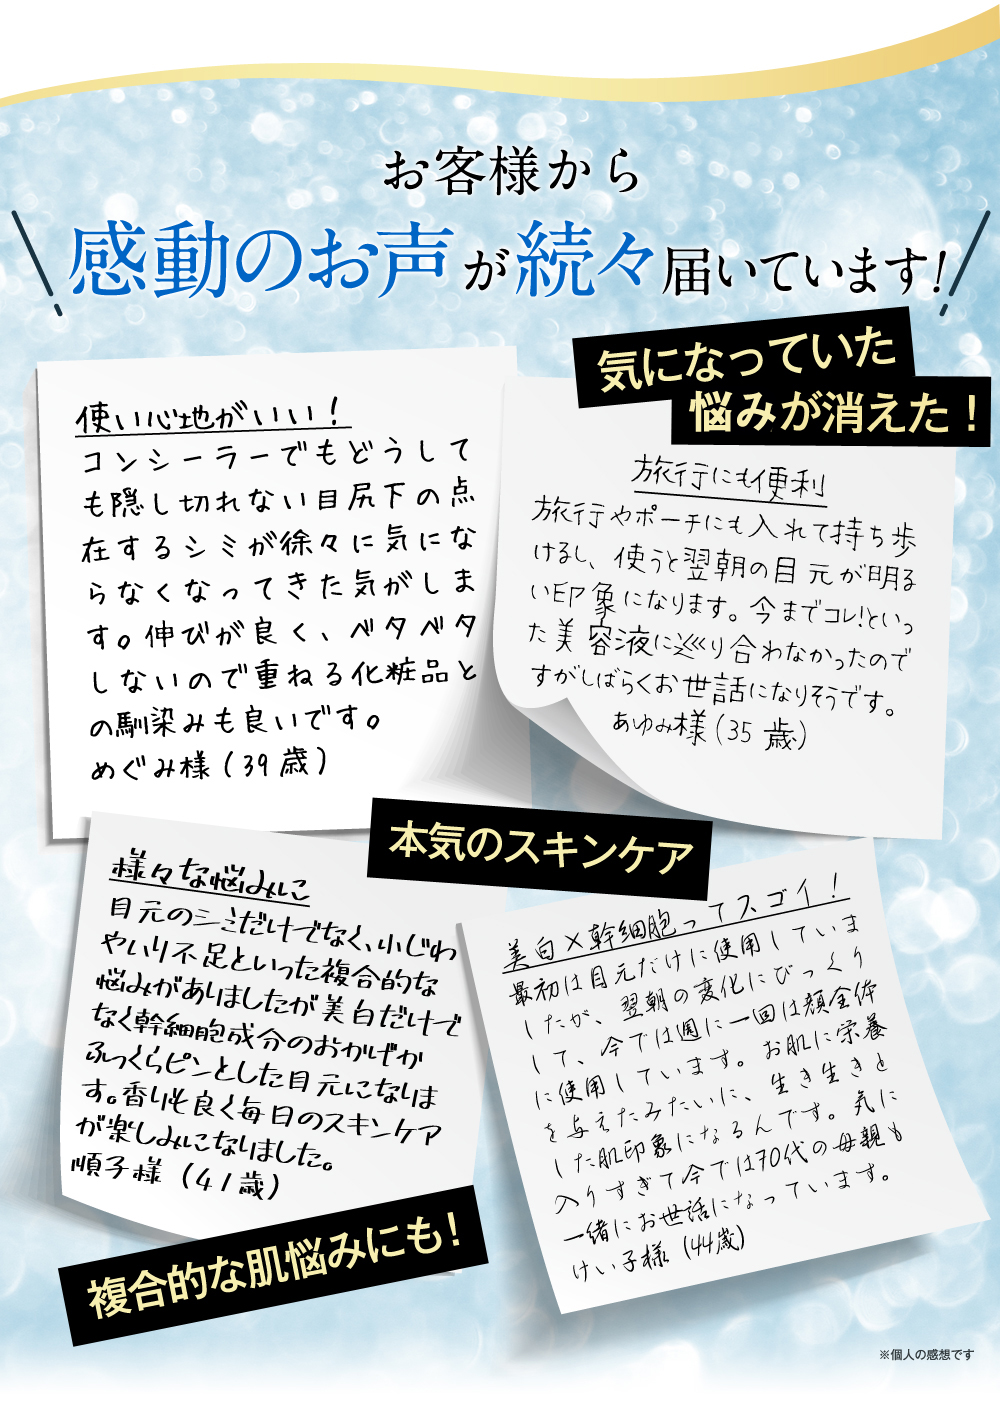 お客様から
感動のお声が続々届いています！
気になっていた
悩みが消えた！
使い心地がいい！
コンシーラーでもどうして
も隠し切れない目尻下の点
在するシミが徐々に気にな
らなくなってきた気がしま
す。伸びが良く、ベタベタ
しないので重ねる化粧品と
の馴染みも良いです。
めぐみ様（39歳）
旅行にも便利
旅行やポーチにも入れて持ち歩
けるし、使うと翌朝の目元が明る
い印象になります。今までコレ！といっ
た美容液に巡り合わなかったので
すがしばらくお世話になりそうです。
あゆみ様（35歳）
本気のスキンケア
様々な悩みに
目元のシミだけでなく、小じわ
やハリ不足といった複合的な
悩みがありましたが美白だけで
なく幹細胞成分のおかげか
ふっくらピンとした目元になりま
す。香りも良く毎日のスキンケア
が楽しみになりました。
順子様（41歳）
複合的な肌悩みにも！
美白×幹細胞ってスゴイ！
最初は目元だけに使用していま
したが、翌朝の変化にびっくり
して、今では週に一回は顔全体
に使用しています。お肌に栄養
を与えたみたいに、生き生きと
した肌印象になるんです。気に
入りすぎて今では70代の母親も
一緒にお世話になっています。
けい子様（44歳）
※個人の感想です